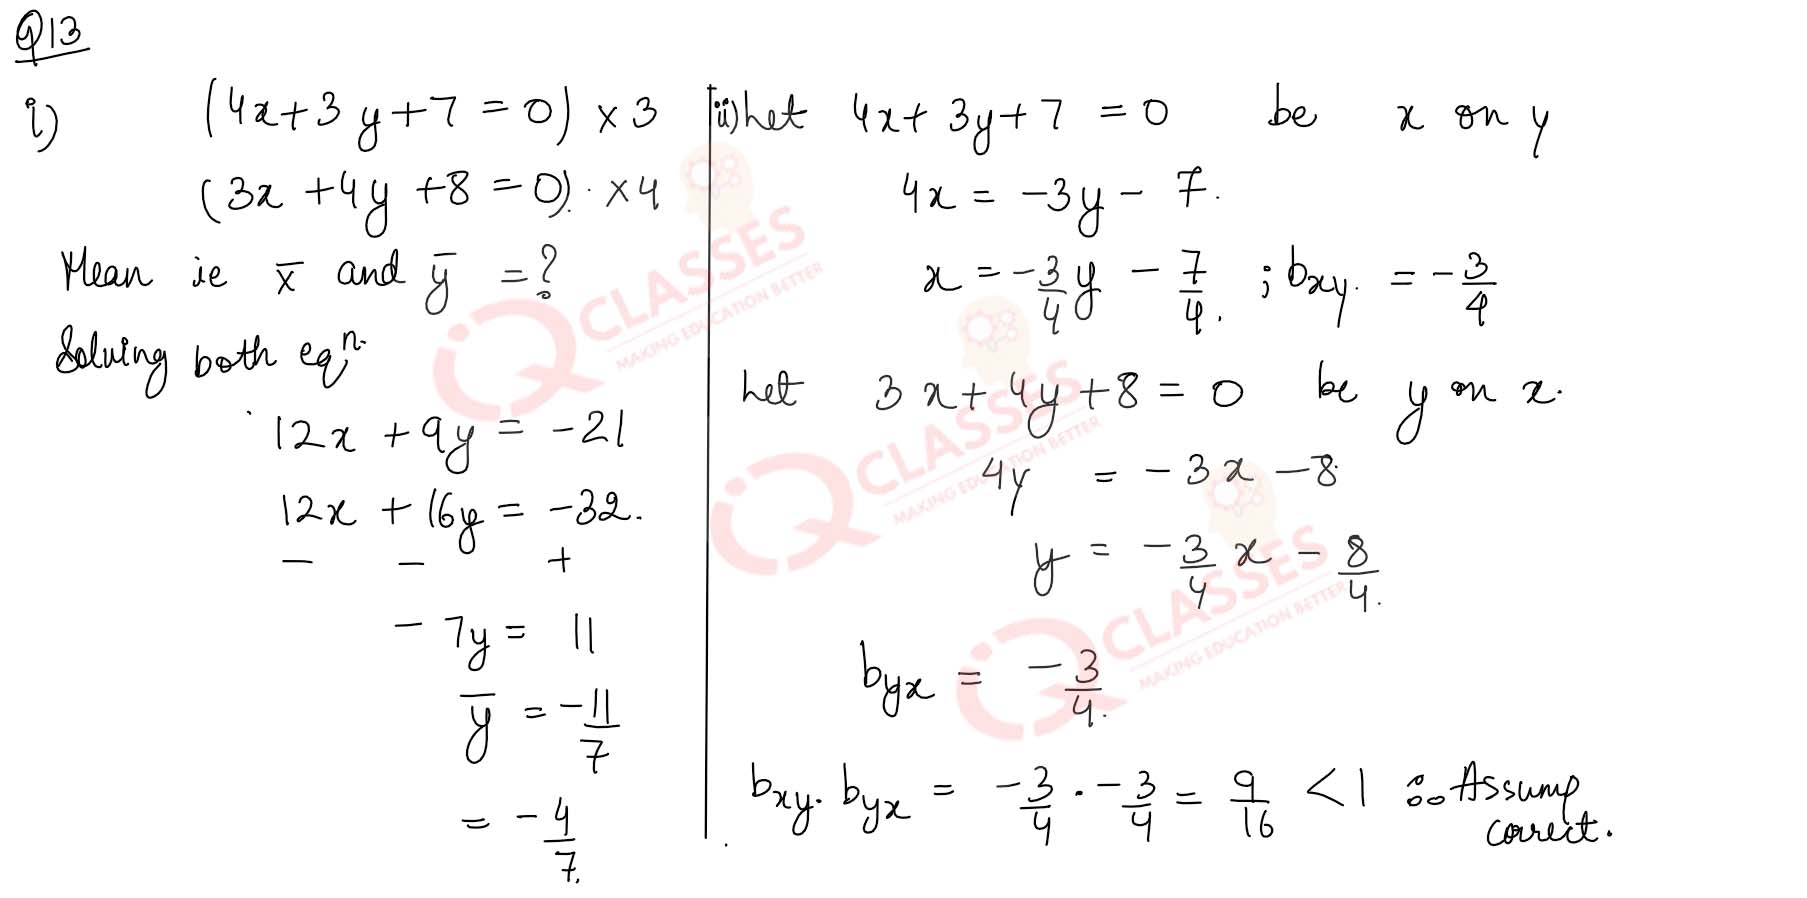 Q13
i) (4x+3y+7=0) ×3
(3x+4y+8=0). ×4
Mean ie x̄ and ȳ =?
Solving both eqⁿ.
12x + 9y = -21
12x + 16y = -32.
- - +
- 7y = 11
ȳ = -11/7
= -4/7.
ii) Let 4x+3y+7=0 be x on y
4x = -3y - 7.
x = -3/4 y - 7/4. ; bxy. = -3/4
Let 3x+4y+8=0 be y on x.
4y = -3x -8
y = -3/4 x - 8/4.
byx = -3/4.
bxy. byx = -3/4 . -3/4 = 9/16 <1 ∴ Assump
correct.
iQ CLASSES
MAKING EDUCATION BETTER
iQ CLASSES
MAKING EDUCATION BETTER
iQ CLASSES
MAKING EDUCATION BETTER